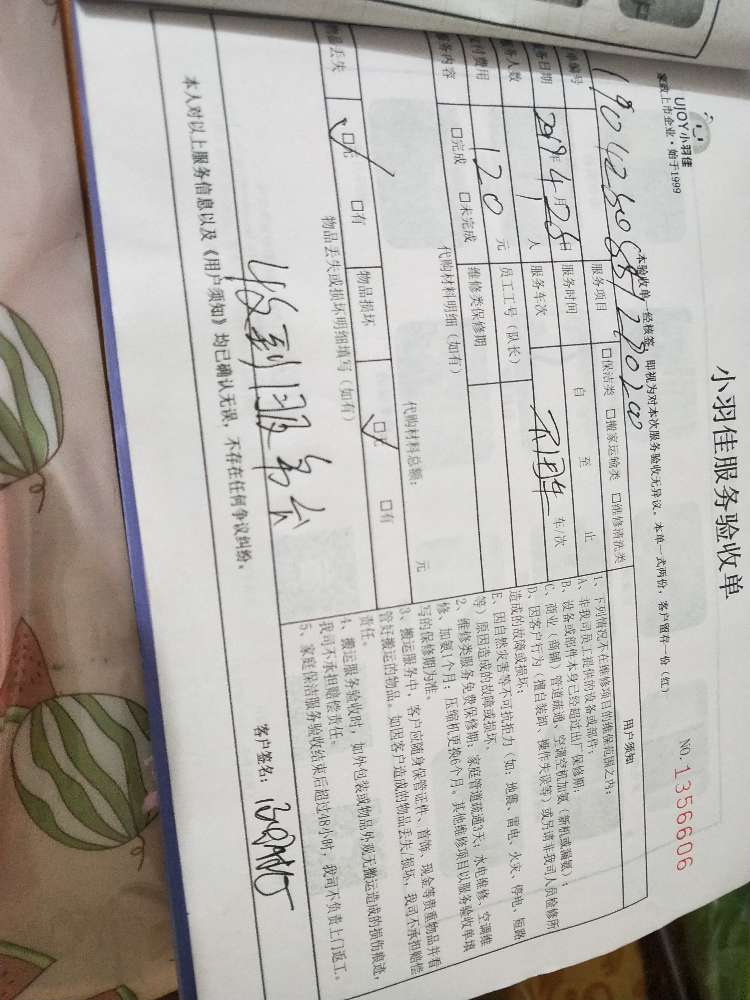 小羽佳服务验收单
UJOY小羽佳
家政上市企业·始于1999
NO.1356606
本验收单一经核签，即视为对本次服务验收无异议。本单一式两份，客户留存一份（红）
单编号
服务项目
□保洁类 □搬家运输类 □维修清洗类
用户须知
务日期
2019年4月26日
服务时间
自 至 止
务人数
人
服务车次
车/次
付费用
120元
员工工号（队长）
服务内容
□完成 □未完成
维修类保修期
代购材料明细（如有）
代购材料总额： 元
物品丢失
☑无 □有
物品损坏
☑无 □有
物品丢失或损坏明细填写（如有）
收到服务台
1、下列情况不在维修项目的维保范围之内：
A、非我司员工提供的设备或部件；
B、设备或部件本身已经超过出厂保修期；
C、商业（商铺）管道疏通，空调空机加氨（新租或漏氨）；
D、因客户行为（擅自装卸、操作失误等）或另请非我司人员检修所
造成的故障或损坏；
E、因自然灾害等不可抗拒力（如：地震、雷电、火灾、停电、短路
等）原因造成的故障或损坏。
2、维修类服务免费保修期：家庭管道疏通3天；水电维修、空调维
修、加氨1个月；压缩机更换6个月。其他维修项目以服务验收单填
写的保修期为准。
3、搬运服务中，客户应随身保管证件、首饰、现金等贵重物品并看
管好搬运的物品。如因客户造成的物品丢失/损坏，我司不承担赔偿
责任。
4、搬运服务验收时，如外包装或物品外观无搬运造成的损伤痕迹，
我司不承担赔偿责任。
5、家庭保洁服务验收结束后超过48小时，我司不负责上门返工。
本人对以上服务信息以及《用户须知》均已确认无误，不存在任何争议纠纷。
客户签名：